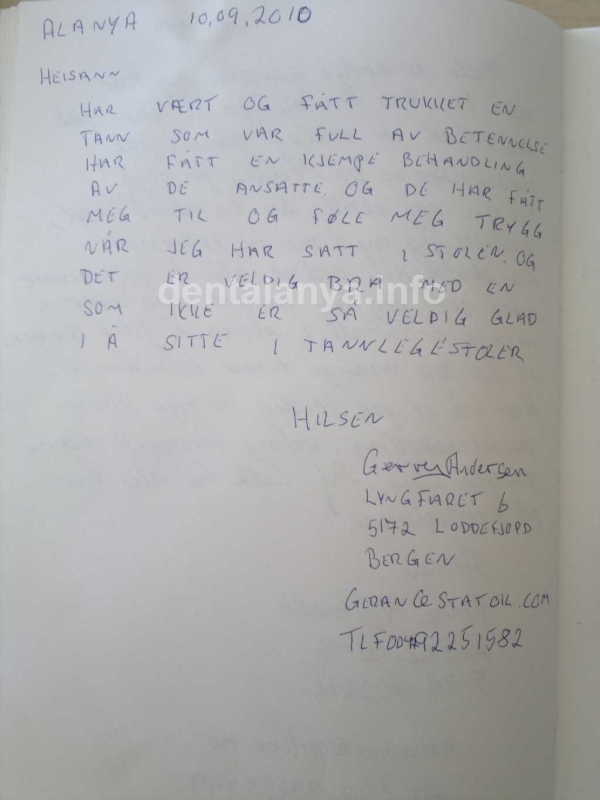 ALANYA 10,09,2010
HEISANN
HAR VÆRT OG FÅTT TRUKKET EN
TANN SOM VAR FULL AV BETENNELSE
HAR FÅTT EN KJEMPE BEHANDLING
AV DE ANSATTE. OG DE HAR FÅTT
MEG TIL OG FØLE MEG TRYGG
NÅR JEG HAR SATT I STOLEN. OG
DET ER VELDIG BRA MED EN
dentalanya.info
SOM IKKE ER SÅ VELDIG GLAD
I Å SITTE I TANNLEGESTOLER
HILSEN
Andersen
LYNGFARET 6
5172 LODDEFJORD
BERGEN
GERAN@STATOIL.COM
TLF004792251582